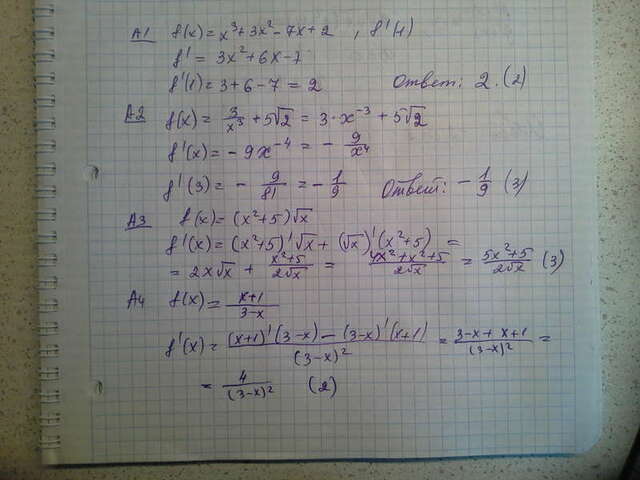 А1 f(x) = x³+3x²-7x+2 , f'(1)
f' = 3x²+6x-7
f'(1) = 3+6-7 = 2 Ответ: 2. (2)
А2 f(x) = 3/x³ + 5√2 = 3·x⁻³ + 5√2
f'(x) = -9x⁻⁴ = - 9/x⁴
f'(3) = - 9/81 = - 1/9 Ответ: - 1/9 (3)
А3 f(x) = (x²+5)√x
f'(x) = (x²+5)'√x + (√x)'(x²+5) =
= 2x√x + (x²+5)/(2√x) = (4x²+x²+5)/(2√x) = (5x²+5)/(2√x) (3)
А4 f(x) = (x+1)/(3-x)
f'(x) = ((x+1)'(3-x) - (3-x)'(x+1))/((3-x)²) = (3-x+x+1)/((3-x)²) =
= 4/((3-x)²) (2)